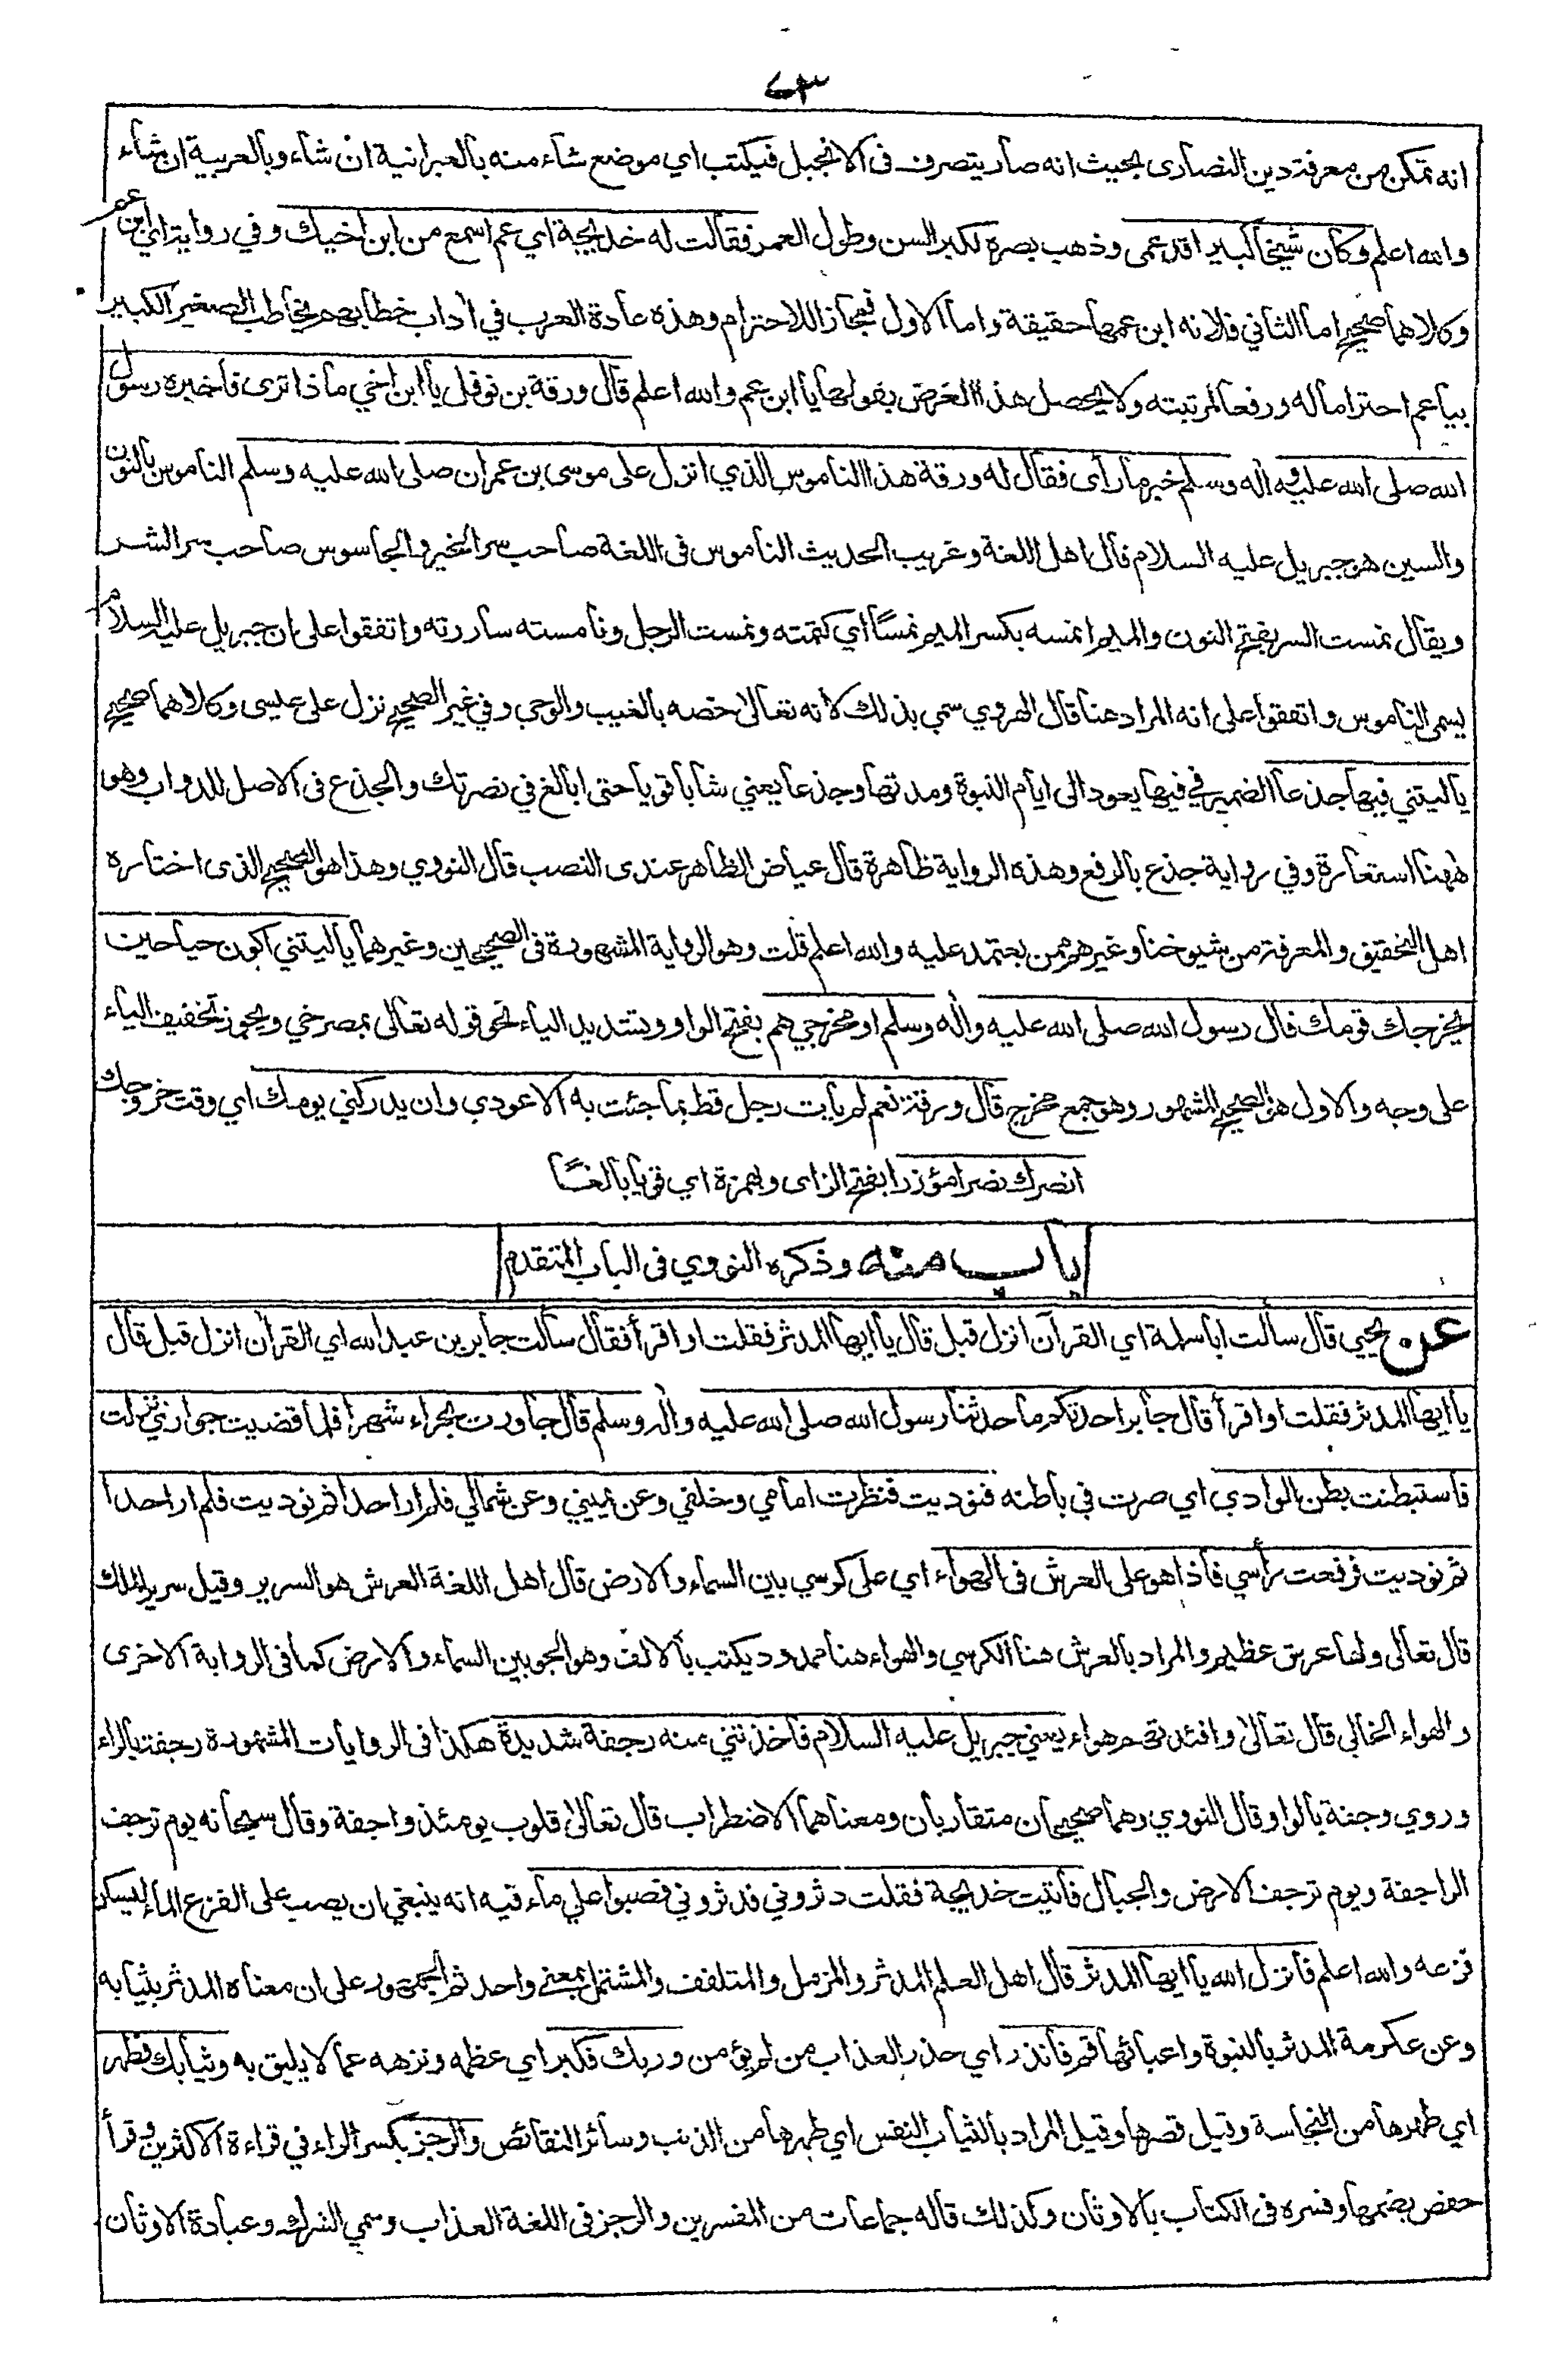 ٧٣
انه تمكن من معرفة دين النصارى بحيث انه صار يتصرف فى الانجيل فيكتب اي موضع شاء منه بالعبرانية ان شاء وبالعربية ان شاء
والله اعلم وكان شيخا كبيرا قد عمى وذهب بصره لكبر السن وطول العمر فقالت له خديجة اي عم اسمع من ابن اخيك وفي رواية اي ابن عم
وكلاهما صحيح اما الثاني فلانه ابن عمها حقيقة واما الاول فمجاز اللاحترام وهذه عادة العرب في اداب خطابهم يخاطب الصغير الكبير
بيا عم احتراما له ورفعا لمرتبته ولا يحصل هذا الغرض بقولها يا ابن عم والله اعلم قال ورقة بن نوفل يا ابن اخي ما ذا ترى فاخبره رسول
الله صلى الله عليه واله وسلم خبر ما رأى فقال له ورقة هذا الناموس الذي انزل على موسى بن عمران صلى الله عليه وسلم الناموس بالنون
والسين هو جبريل عليه السلام قال اهل اللغة وغريب الحديث الناموس فى اللغة صاحب سر الخير والجاسوس صاحب سر الشر
ويقال نمست السر بفتح النون والميم انمسه بكسر الميم نمسًا اي كتمته ونمست الرجل ونامسته ساررته واتفقوا على ان جبريل عليه السلام
يسمى الناموس واتفقوا على انه المراد هنا قال الهروي سمي بذلك لانه تعالى خصه بالغيب والوحي وفي غير الصحيح نزل على عيسى وكلاهما صحيح
يا ليتني فيها جذعا الضمير في فيها يعود الى ايام النبوة ومدتها وجذعا يعني شابا قويا حتى ابالغ في نصرتك والجذع فى الاصل للدواب وهو
ههنا استعارة وفي رواية جذع بالرفع وهذه الرواية ظاهرة قال عياض الظاهر عندى النصب قال النووي وهذا هو الصحيح الذى اختاره
اهل التحقيق والمعرفة من شيوخنا وغيرهم ممن يعتمد عليه والله اعلم قلت وهو الرواية المشهورة فى الصحيحين وغيرهما يا ليتني اكون حيا حين
يخرجك قومك قال رسول الله صلى الله عليه واله وسلم او مخرجي هم بفتح الواو وتشديد الياء نحو قوله تعالى بمصرخي ويجوز تخفيف الياء
على وجه والاول هو الصحيح المشهور وهو جمع مخرج قال ورقة نعم لم يات رجل قط بما جئت به الا عودي وان يدركني يومك اي وقت خروجك
انصرك نصرا مؤزرا بفتح الزاى وبهمزة اي قويا بالغًا
باب منه وذكره النووي فى الباب المتقدم
عن يحيي قال سألت ابا سلمة اي القرآن انزل قبل قال يا ايها المدثر فقلت او اقرأ فقال سألت جابر بن عبد الله اي القرآن انزل قبل قال
يا ايها المدثر فقلت او اقرأ قال جابر احدثكم ما حدثنا رسول الله صلى الله عليه واله وسلم قال جاورت بحراء شهرا فلما قضيت جواري نزلت
فاستبطنت بطن الوادي اي صرت في باطنه فنوديت فنظرت امامي وخلفي وعن يميني وعن شمالي فلم ار احدا ثم نوديت فلم ار احدا
ثم نوديت فرفعت رأسي فاذا هو على العرش فى الهواء اي على كرسي بين السماء والارض قال اهل اللغة العرش هو السرير وقيل سرير الملك
قال تعالى ولها عرش عظيم والمراد بالعرش هنا الكرسي والهواء هنا ممدود يكتب بالالف وهو الجو بين السماء والارض كما فى الرواية الاخرى
والهواء الخالي قال تعالى وافئدتهم هواء يعني جبريل عليه السلام فاخذتني منه رجفة شديدة هكذا فى الروايات المشهورة رجفة بالراء
وروي وجفة بالواو قال النووي وهما صحيحان متقاربان ومعناهما الاضطراب قال تعالى قلوب يومئذ واجفة وقال سبحانه يوم ترجف
الراجفة ويوم ترجف الارض والجبال فاتيت خديجة فقلت دثروني فدثروني فصبوا علي ماء فيه انه ينبغي ان يصب على الفزع الماء ليسكن
فزعه والله اعلم فانزل الله يا ايها المدثر قال اهل العلم المدثر والمزمل والمتلفف والمشتمل بمعنى واحد ثم الجمهور على ان معناه المدثر بثيابه
وعن عكرمة المدثر بالنبوة واعبائها قم فانذر اي حذر العذاب من لم يؤمن وربك فكبر اي عظمه ونزهه عما لا يليق به وثيابك فطهر
اي طهرها من النجاسة وقيل قصرها وقيل المراد بالثياب النفس اي طهرها من الذنب وسائر النقائص والرجز بكسر الراء في قراءة الاكثرين وقرأ
حفص بضمها وفسره فى الكتاب بالاوثان وكذلك قاله جماعات من المفسرين والرجز فى اللغة العذاب وسمي الشرك وعبادة الاوثان